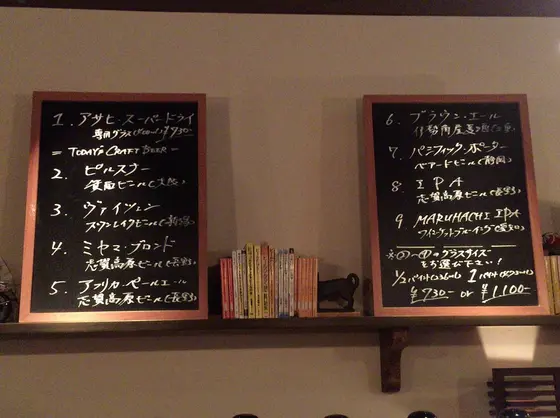 1. アサヒ・スーパードライ
専用グラス ¥730-
= TODAY'S CRAFT BEER =
2. ピルスナー
箕面ビール(大阪)
3. ヴァイツェン
スワンレイクビール(新潟)
4. ミヤマ・ブロンド
志賀高原ビール(長野)
5. アフリカペールエール
志賀高原ビール(長野)
6. ブラウン・エール
伊勢角屋麦酒(三重)
7. パシフィック・ポーター
ベアードビール(静岡)
8. IPA
志賀高原ビール(長野)
9. MARUHACHI IPA
※②〜⑨のグラスサイズ
をお選び下さい!
1/2パイント 1パイント
¥730- or ¥1100-